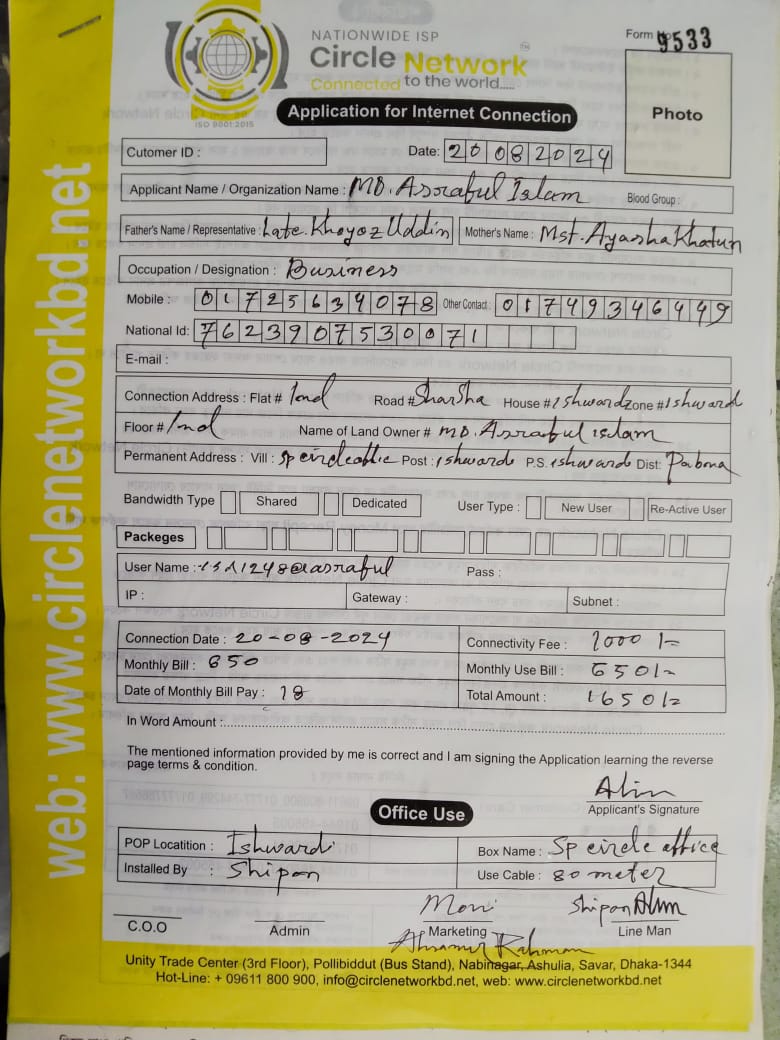 NATIONWIDE ISP
Circle Network™
Connected to the world.....
ISO 9001:2015
Form No 9533
Photo
Application for Internet Connection
Cutomer ID :
Date: 20082024
Applicant Name / Organization Name : MD. Asraful Islam Blood Group :
Father's Name / Representative : Late. Khoyoz Uddin Mother's Name : Mst. Ayasha Khatun
Occupation / Designation : Business
Mobile : 01725634078 Other Contact : 01749346449
National Id: 7623907530071
E-mail :
Connection Address : Flat # Road # Sharsha House # Ishward Zone # Ishward
Floor # Name of Land Owner # MD. Asraful islam
Permanent Address : Vill : Sp circle Post : ishwardi P.S. ishwardi Dist: Pabna
Bandwidth Type Shared Dedicated User Type : New User Re-Active User
Packeges
User Name : isd1248@asraful Pass :
IP : Gateway : Subnet :
Connection Date : 20-08-2024 Connectivity Fee : 1000/-
Monthly Bill : 650 Monthly Use Bill : 650/-
Date of Monthly Bill Pay : 18 Total Amount : 1650/-
In Word Amount :
The mentioned information provided by me is correct and I am signing the Application learning the reverse
page terms & condition.
Alim
Applicant's Signature
Office Use
POP Locatition : Ishwardi Box Name : Sp circle office
Installed By : Shipon Use Cable : 80 meter
Moni Shipon Alim
C.O.O Admin Marketing Line Man
Rahman
Unity Trade Center (3rd Floor), Pollibiddut (Bus Stand), Nabinagar, Ashulia, Savar, Dhaka-1344
Hot-Line: + 09611 800 900, info@circlenetworkbd.net, web: www.circlenetworkbd.net
web: www.circlenetworkbd.net